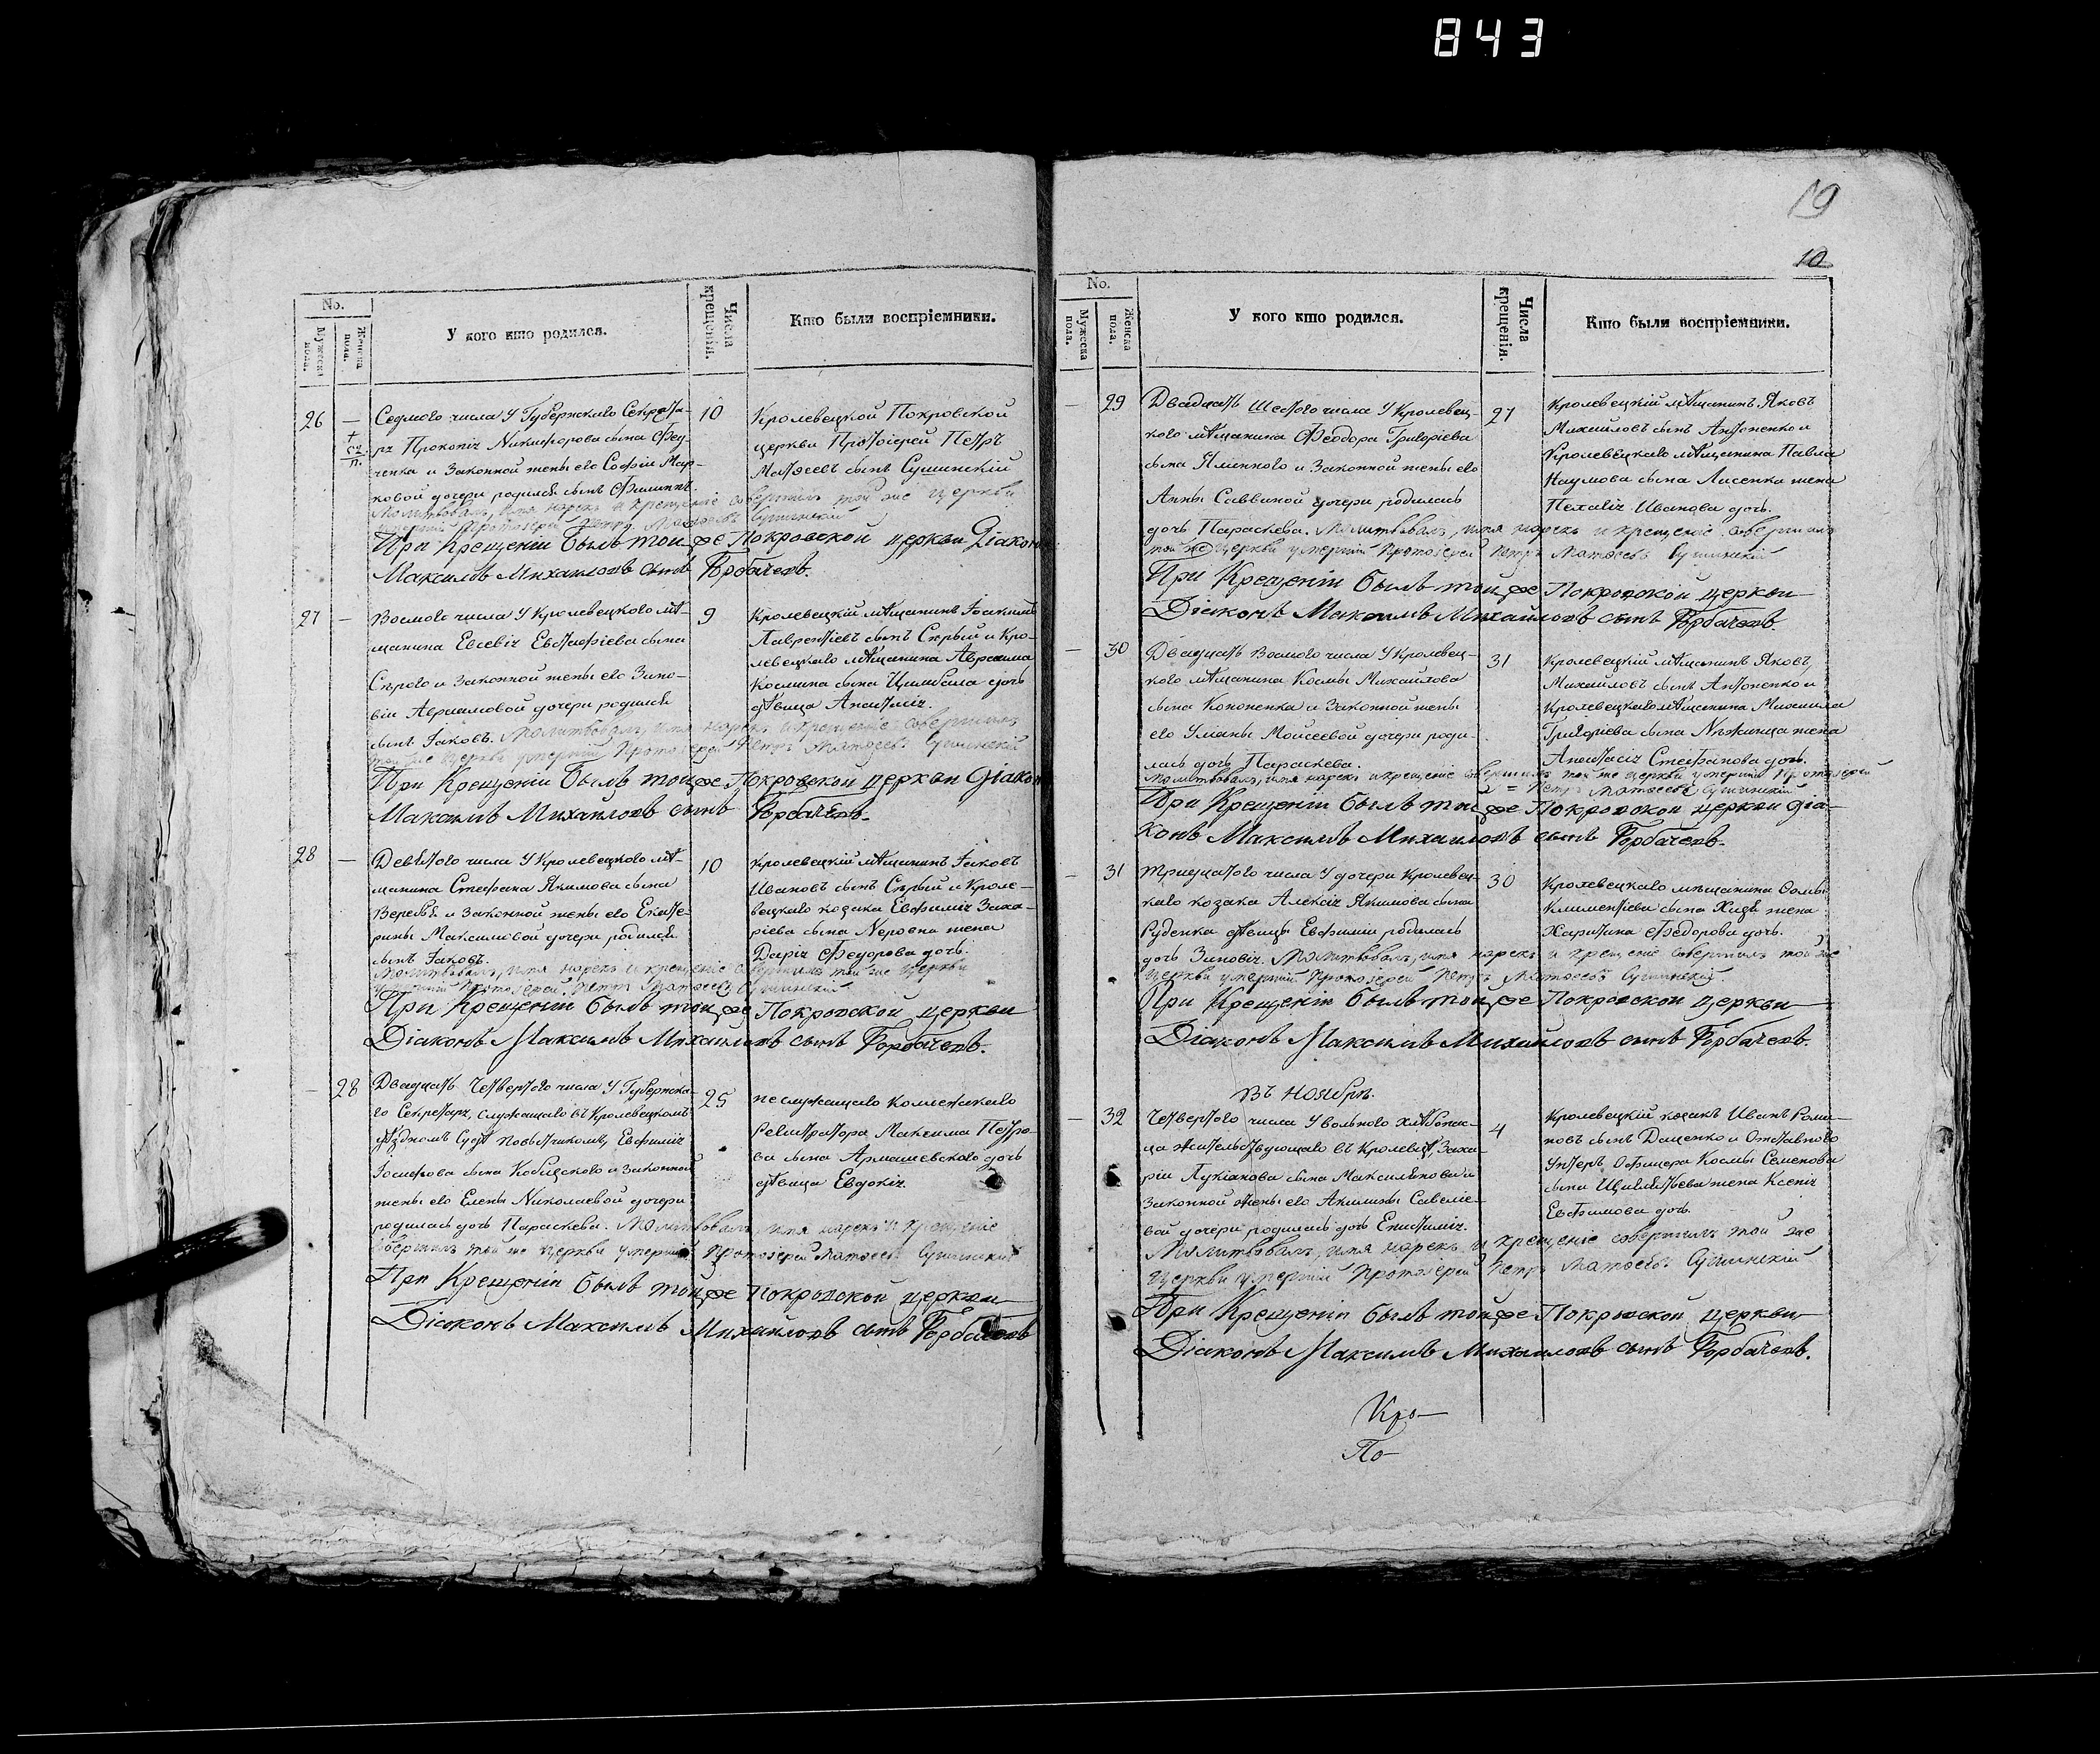 843
19
10
No.
Мужеска пола.
Женска пола.
У кого кто родился.
Числа крещенія.
Кто были воспріемники.
26 —
Седмого числа У Губернскаго Секрета-
ря Прокопія Никифорова сына Фед-
ченка и Законной жены его Софіи Мар-
ковой дочери родился сынъ Филиппъ.
10
Кролевецкой Покровской
церкви Протоіерей Петръ
Матѳеевъ сынъ Сушинскій
Молитвовалъ, имя нарекъ и крещеніе совершилъ той же церкви
умершій Протоіерей Петръ Матѳеевъ Сушинскій
При Крещеніи былъ той же Покровской церкви Діаконъ
Максимъ Михайловъ сынъ Горбачевъ.
27 —
Восмого числа У Кролевецкого мѣ-
щанина Евсевія Евстафіева сына
Сѣрого и Законной жены его Зино-
віи Авраамовой дочери родился
сынъ Іаковъ.
9
Кролевецкій мѣщанинъ Іоакимъ
Лаврентіевъ сынъ Сѣрый и Кро-
левецкаго мѣщанина Авраама
Космина сына Цимбала дочь
дѣвица Анастасія.
Молитвовалъ, имя нарекъ и крещеніе совершилъ
той же церкви умершій Протоіерей Петръ Матѳеевъ Сушинскій
При Крещеніи былъ той же Покровской церкви Діаконъ
Максимъ Михайловъ сынъ Горбачевъ.
28 —
Девятого числа У Кролевецкого мѣ-
щанина Стефана Якимова сына
и Законной жены его Екате-
рины Максимовой дочери родился
сынъ Іаковъ.
10
Кролевецкій мѣщанинъ Іаковъ
Ивановъ сынъ Сѣрый и Кроле-
вецкаго козака Евфимія Заха-
ріева сына жена
Дарія Федорова дочь.
Молитвовалъ, имя нарекъ и крещеніе совершилъ той же церкви
умершій Протоіерей Петръ Матѳеевъ Сушинскій
При Крещеніи былъ той же Покровской церкви
Діаконъ Максимъ Михайловъ сынъ Горбачевъ.
— 28
Двадцать Четвертого числа У Губернска-
го Секретаря, служащаго въ Кролевецкомъ
уѣздномъ Судѣ повытчикомъ, Евфимія
Іосифова сына Кобизского и Законной
жены его Елены Николаевой дочери
родилась дочь Параскева.
25
неслужащаго Коллежскаго
Регистратора Максима Петро-
ва сына Армашевского дочь
дѣвица Евдокія.
Молитвовалъ, имя нарекъ и крещеніе
совершилъ той же церкви умершій Протоіерей Матѳеевъ Сушинскій
При Крещеніи былъ той же Покровской церкви
Діаконъ Максимъ Михайловъ сынъ Горбачевъ
No.
Мужеска пола.
Женска пола.
У кого кто родился.
Числа крещенія.
Кто были воспріемники.
— 29
Двадцать Шестого числа У Кролевец-
кого мѣщанина Феодора Григоріева
сына Яминного и Законной жены его
Анны Саввиной дочери родилась
дочь Параскева.
27
Кролевецкій мѣщанинъ Яковъ
Михайловъ сынъ Антоненко и
Кролевецкаго мѣщанина Павла
Наумова сына Лисенка жена
Пелагія Иванова дочь.
Молитвовалъ, имя нарекъ и крещеніе совершилъ
той же церкви умершій Протоіерей Петръ Матѳеевъ Сушинскій
При Крещеніи былъ той же Покровской церкви
Діаконъ Максимъ Михайловъ сынъ Горбачевъ.
— 30
Двадцать Восмого числа У Кролевец-
кого мѣщанина Космы Михайлова
сына Кононенка и Законной жены
его Уліаны Моисеевой дочери роди-
лась дочь Параскева.
31
Кролевецкій мѣщанинъ Яковъ
Михайловъ сынъ Антоненко и
Кролевецкаго мѣщанина Михаила
Григоріева сына Нѣжинца жена
Анастасія Стефанова дочь.
Молитвовалъ, имя нарекъ и крещеніе совершилъ той же церкви умершій Протоіерей
Петръ Матѳеевъ Сушинскій
При Крещеніи былъ той же Покровской церкви Діа-
конъ Максимъ Михайловъ сынъ Горбачевъ.
— 31
Тридцатого числа У дочери Кролевец-
каго козака Алексія Якимова сына
Руденка дѣвицы Евфиміи родилась
дочь Зиновія.
30
Кролевецкаго мѣщанина Ѳомы
Климентіева сына жена
Харитина Федорова дочь.
Молитвовалъ, имя нарекъ и крещеніе совершилъ той же
церкви умершій Протоіерей Петръ Матѳеевъ Сушинскій
При Крещеніи былъ той же Покровской церкви
Діаконъ Максимъ Михайловъ сынъ Горбачевъ.
Въ Ноябрѣ.
— 32
Четвертого числа У вольного хлѣбопаш-
ца жительствующаго въ Кролевцѣ, Заха-
ріи Лукіанова сына Максименкова и
Законной жены его Акилины Савеліе-
вой дочери родилась дочь
4
Кролевецкій козакъ Иванъ Рома-
новъ сынъ Даценко и Отставного
Унтеръ Офицера Космы Семенова
сына жена Ксенія
Евфимова дочь.
Молитвовалъ, имя нарекъ и крещеніе совершилъ той же
церкви умершій Протоіерей Петръ Матѳеевъ Сушинскій
При Крещеніи былъ той же Покровской церкви
Діаконъ Максимъ Михайловъ сынъ Горбачевъ.
Кро-
По-